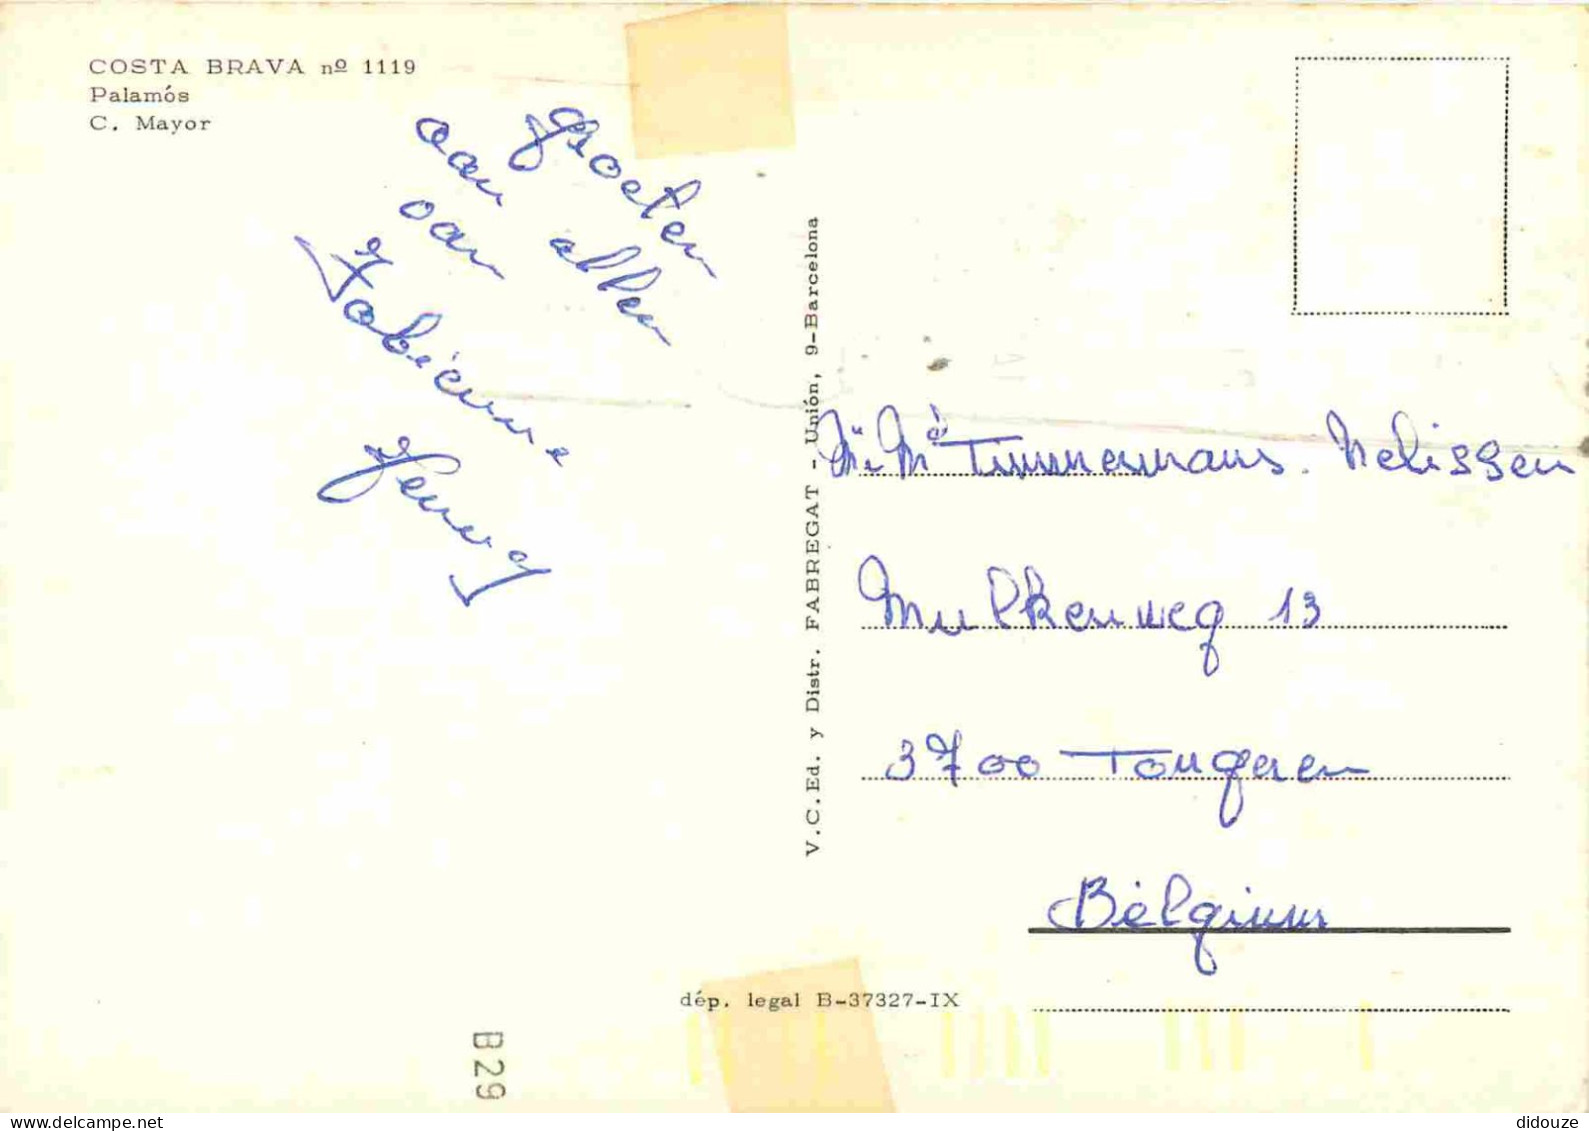 COSTA BRAVA nº 1119
Palamós
C. Mayor
groeten
aan allen
van
Fabienne
Jenny
V.C.Ed. y Distr. FABREGAT - Unión, 9-Barcelona
Timmermans. Nelissen
Mulkenweg 13
3700 Tongeren
Bélgium
dép. legal B-37327-IX
B29
delcampe.net
didouze